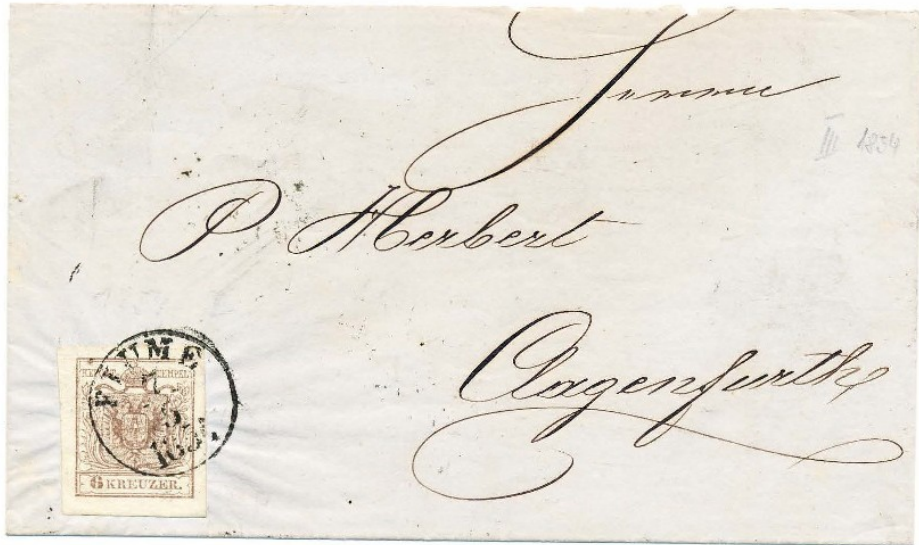 III 1854
P Herbert
Clagenfurth
FIUME
6 KREUZER.